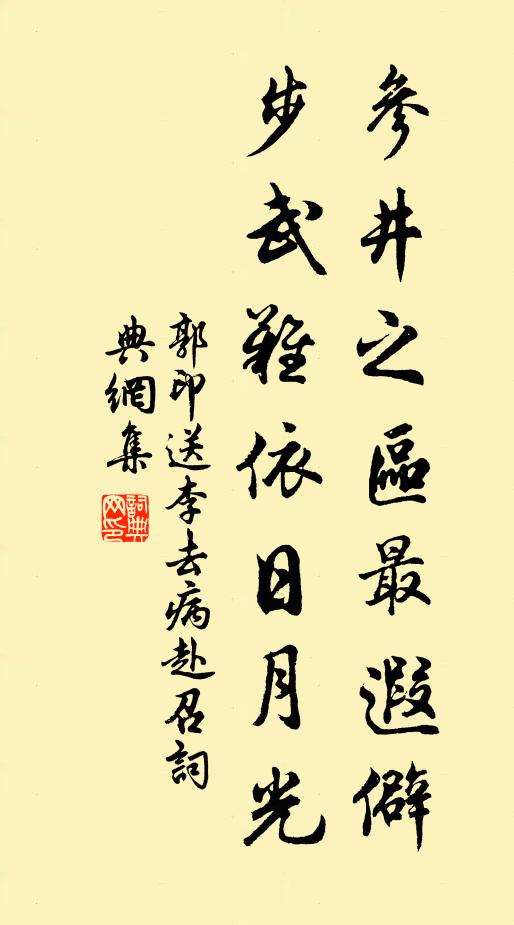 參井之區最遐僻
步武難依日月光
郭印送李去病赴召詞
典網集
詞典網印